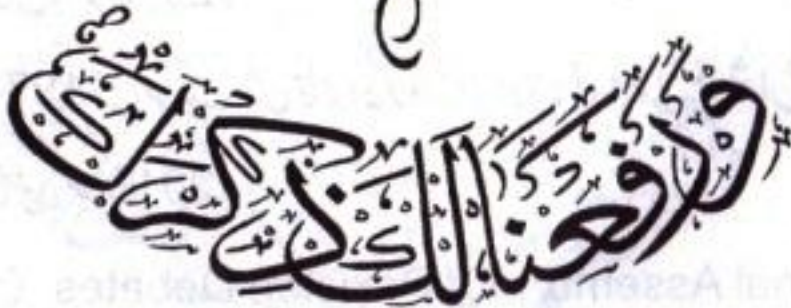 ورفعنا لك ذكرك